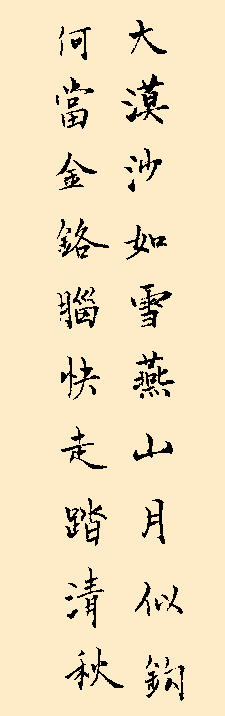 大漠沙如雪燕山月似鈎
何當金鉻腦快走踏清秋